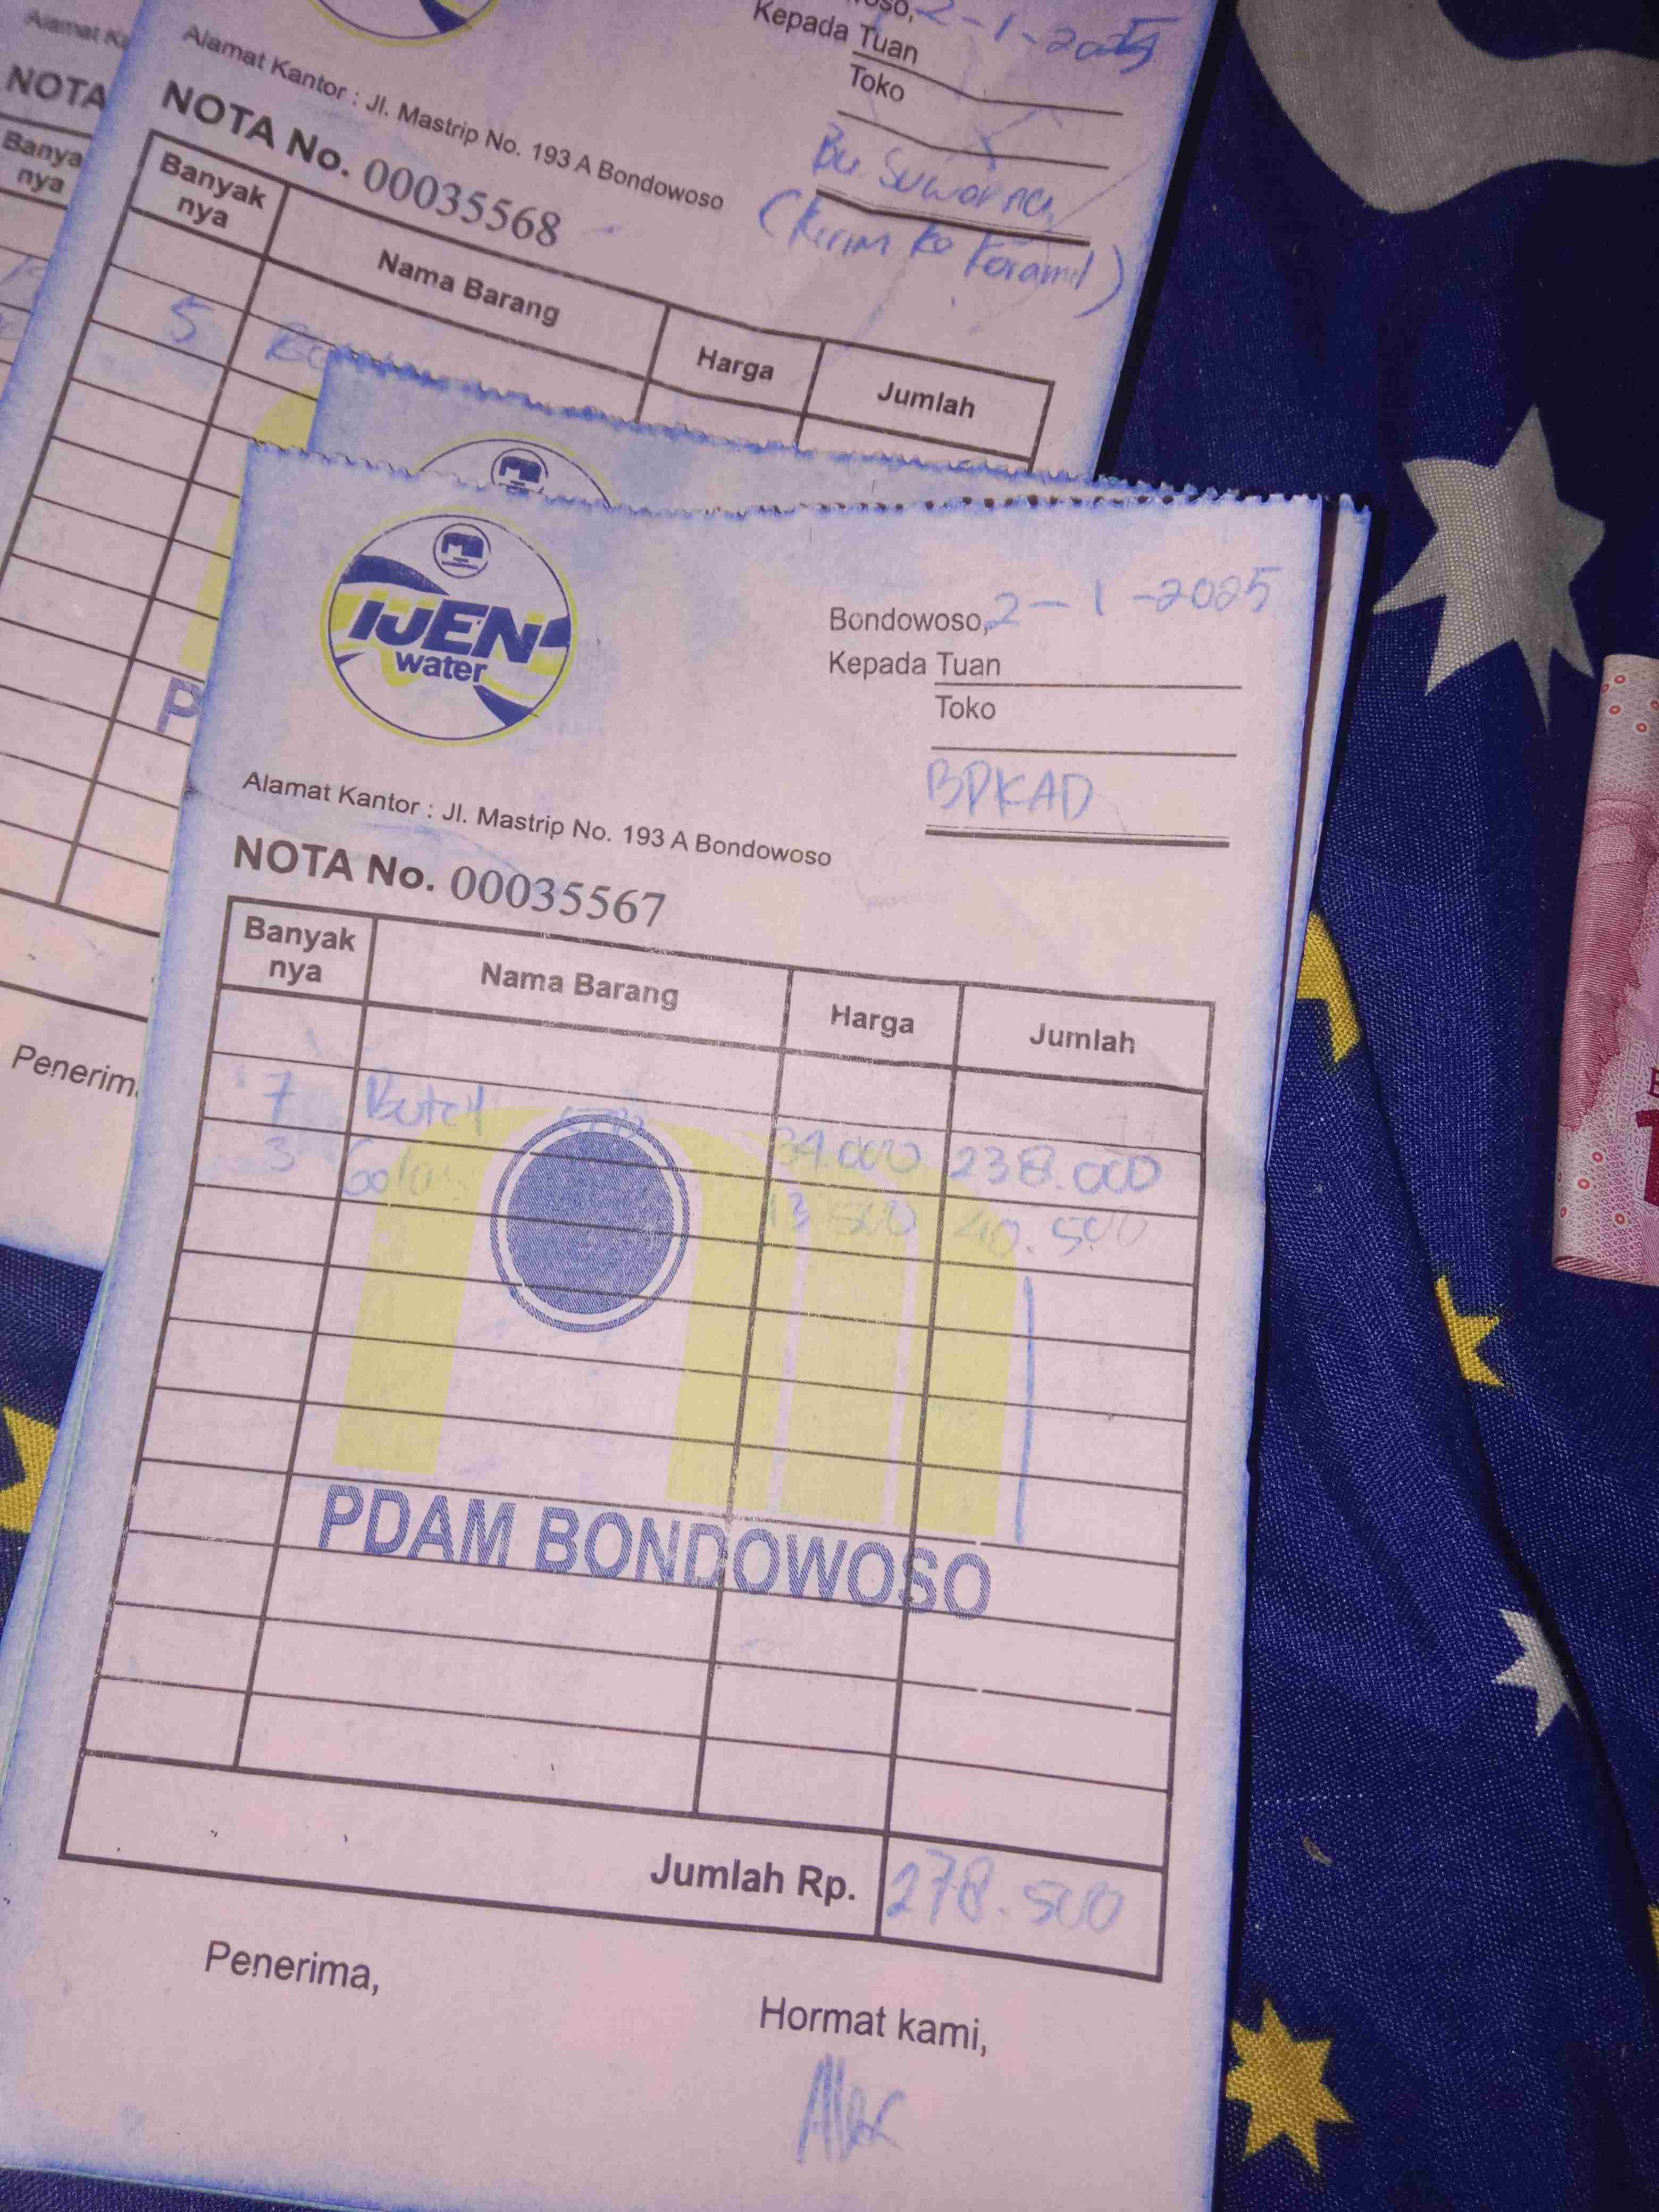 Alamat
NOTA
Banya
nya
Penerim
2-1-2025
Kepada Tuan
Toko
Bu Suwarna
(Kirim ke Koramil)
Alamat Kantor : Jl. Mastrip No. 193 A Bondowoso
NOTA No. 00035568
Banyak
nya
Nama Barang
Harga
Jumlah
5
P
IJEN
water
Bondowoso, 2-1-2025
Kepada Tuan
Toko
BPKAD
Alamat Kantor : Jl. Mastrip No. 193 A Bondowoso
NOTA No. 00035567
Banyak
nya
Nama Barang
Harga
Jumlah
7 Botol 34.000 238.000
3 Gelas 13 500 40.500
PDAM BONDOWOSO
Jumlah Rp. 278.500
Penerima,
Hormat kami,
Alex